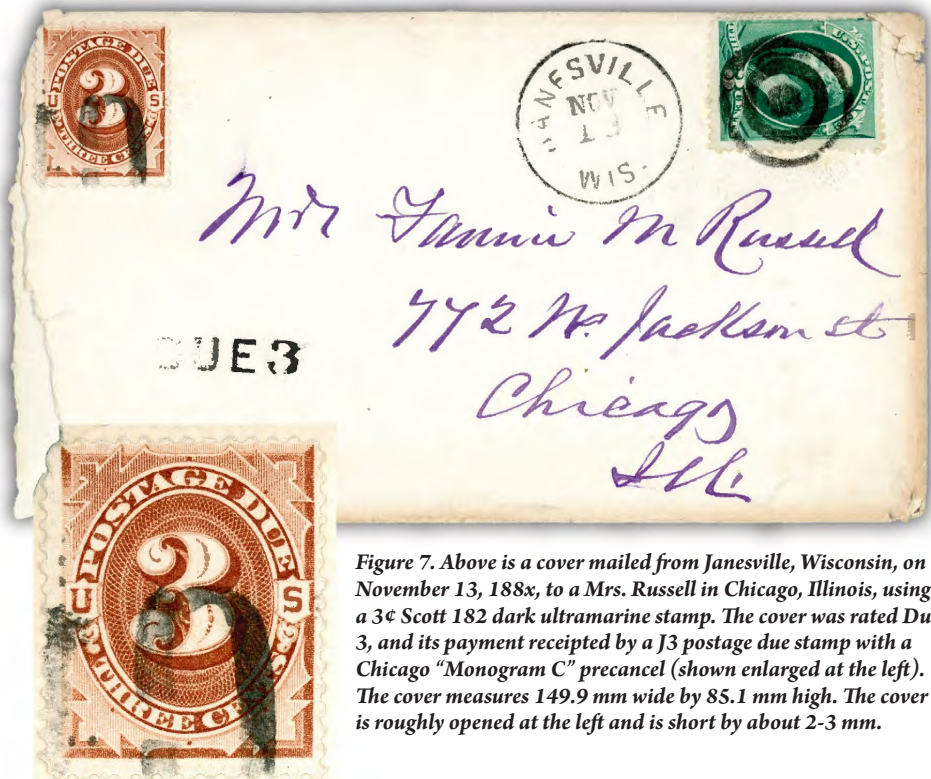 POSTAGE DUE
3
U S
THREE CENTS
JANESVILLE
NOV
WIS.
Mrs Fannie M Russell
772 W. Jackson st
Chicago
Ill.
DUE 3
POSTAGE DUE
3
U S
THREE CENTS
Figure 7. Above is a cover mailed from Janesville, Wisconsin, on
November 13, 188x, to a Mrs. Russell in Chicago, Illinois, using
a 3¢ Scott 182 dark ultramarine stamp. The cover was rated Du
3, and its payment receipted by a J3 postage due stamp with a
Chicago “Monogram C” precancel (shown enlarged at the left).
The cover measures 149.9 mm wide by 85.1 mm high. The cover
is roughly opened at the left and is short by about 2-3 mm.